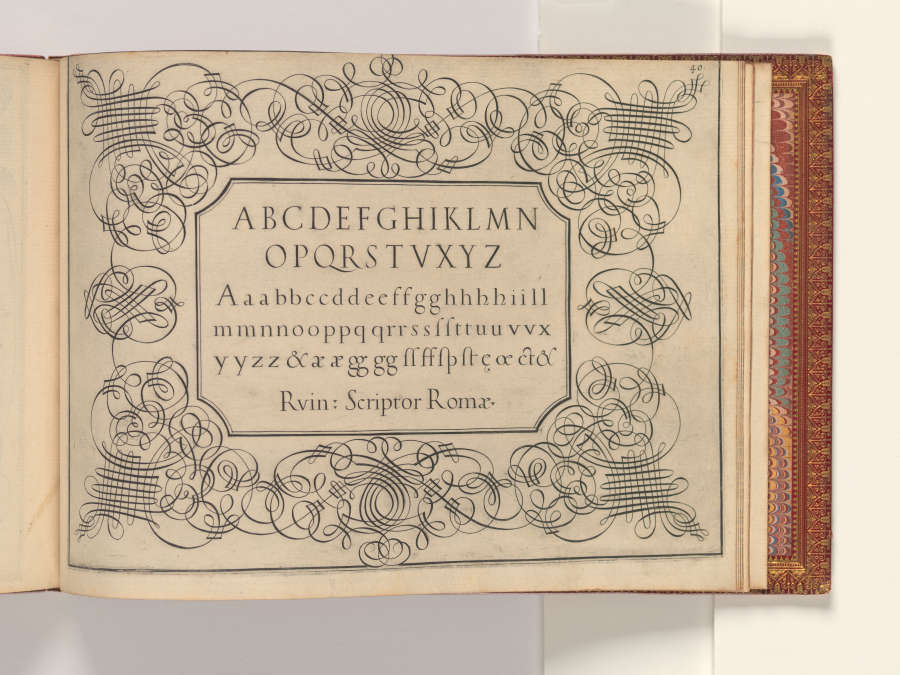 40
ABCDEFGHIKLMN
OPQRSTVXYZ
Aaabbccddeeffgghhhhiill
mmnnooppqqrrssſſttuuvvx
yyzz&ææggggſſffſpſtęœct&
Rvin: Scriptor Romæ.